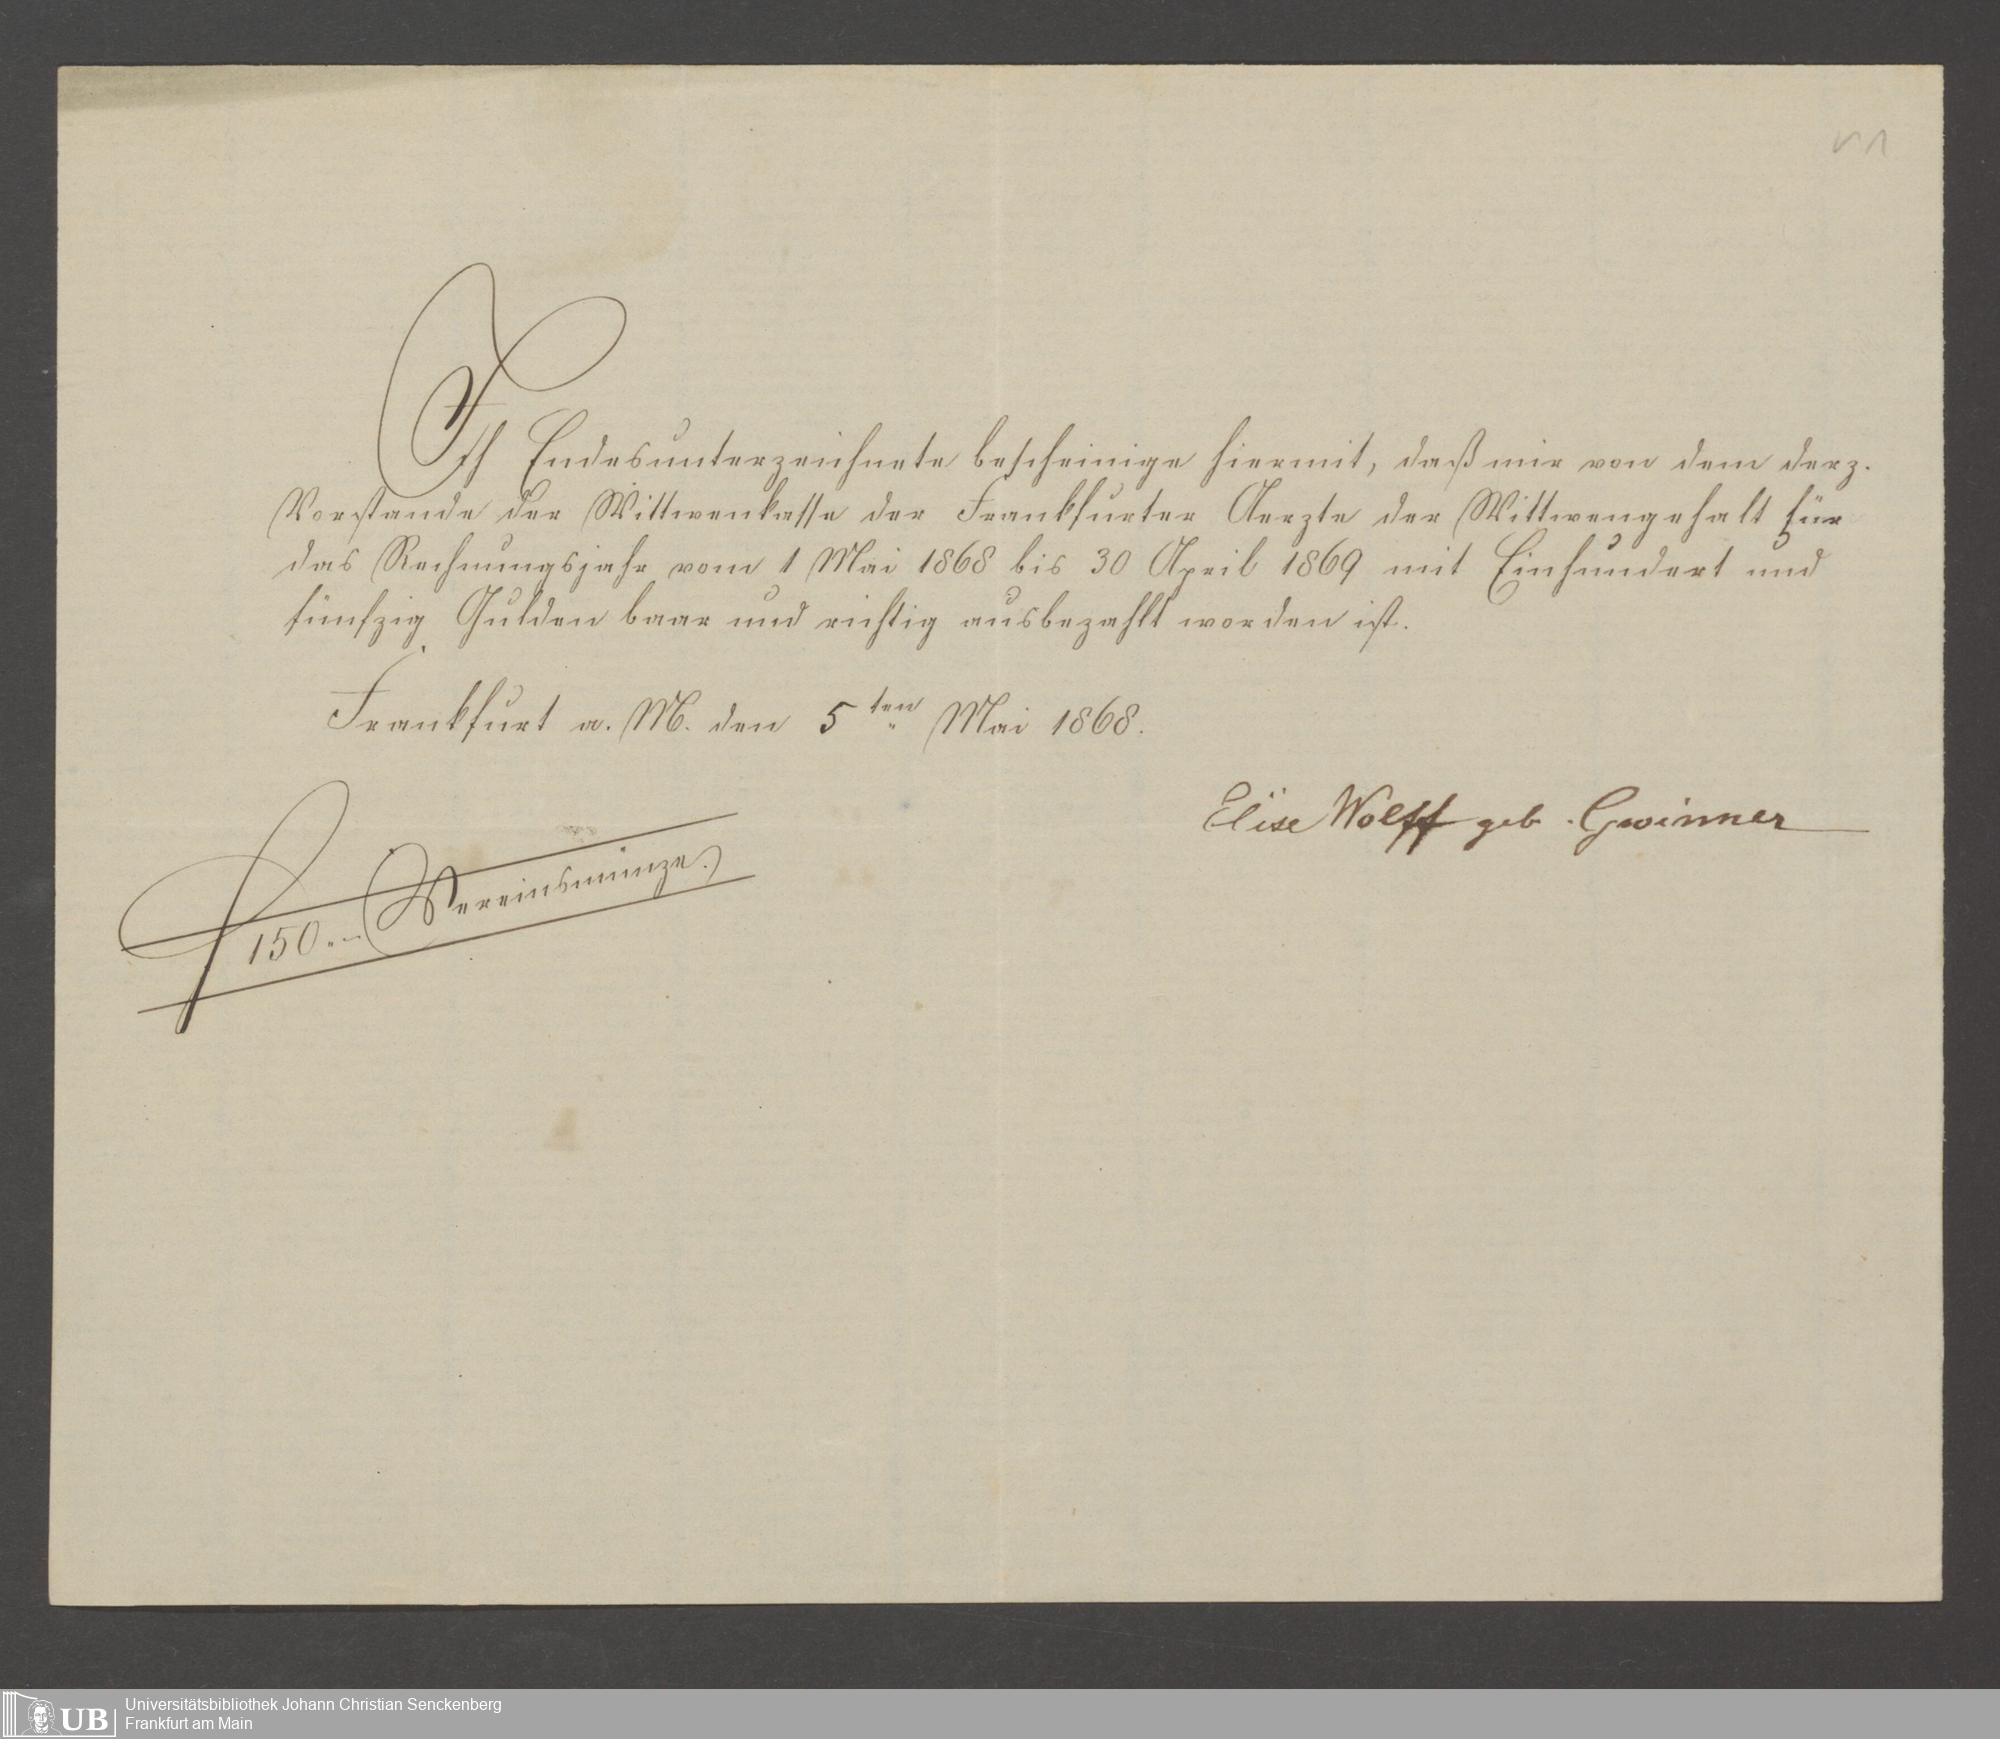 Ich Endesunterzeichnete bescheinige hiermit, daß mir von dem derz.
Vorstande der Wittwenkasse der Frankfurter Aerzte der Wittwengehalt für
das Rechnungsjahr vom 1 Mai 1868 bis 30 April 1869 mit Einhundert und
fünfzig Gulden baar und richtig ausbezahlt worden ist.
Frankfurt a. M. den 5ten Mai 1868.
Elise Wolff geb. Gwinner
f 150.„– Vereinsmünze.
UB
Universitätsbibliothek Johann Christian Senckenberg
Frankfurt am Main